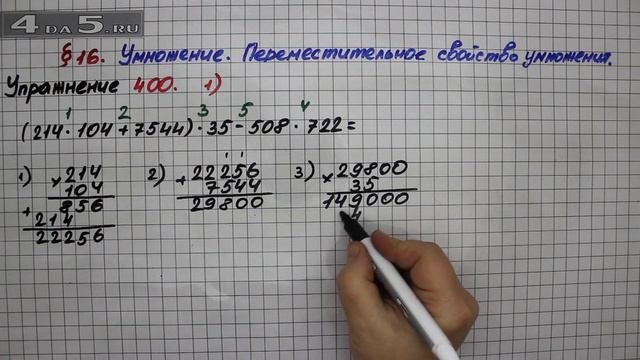 4DA5.RU
§ 16. Умножение. Переместительное свойство умножения.
Упражнение 400. 1)
1 2 3 5 4
(214·104+7544)·35-508·722=
1) ×214
104
+ 856
214
22256
2) +22256
7544
29800
3) ×29800
35
149000
4